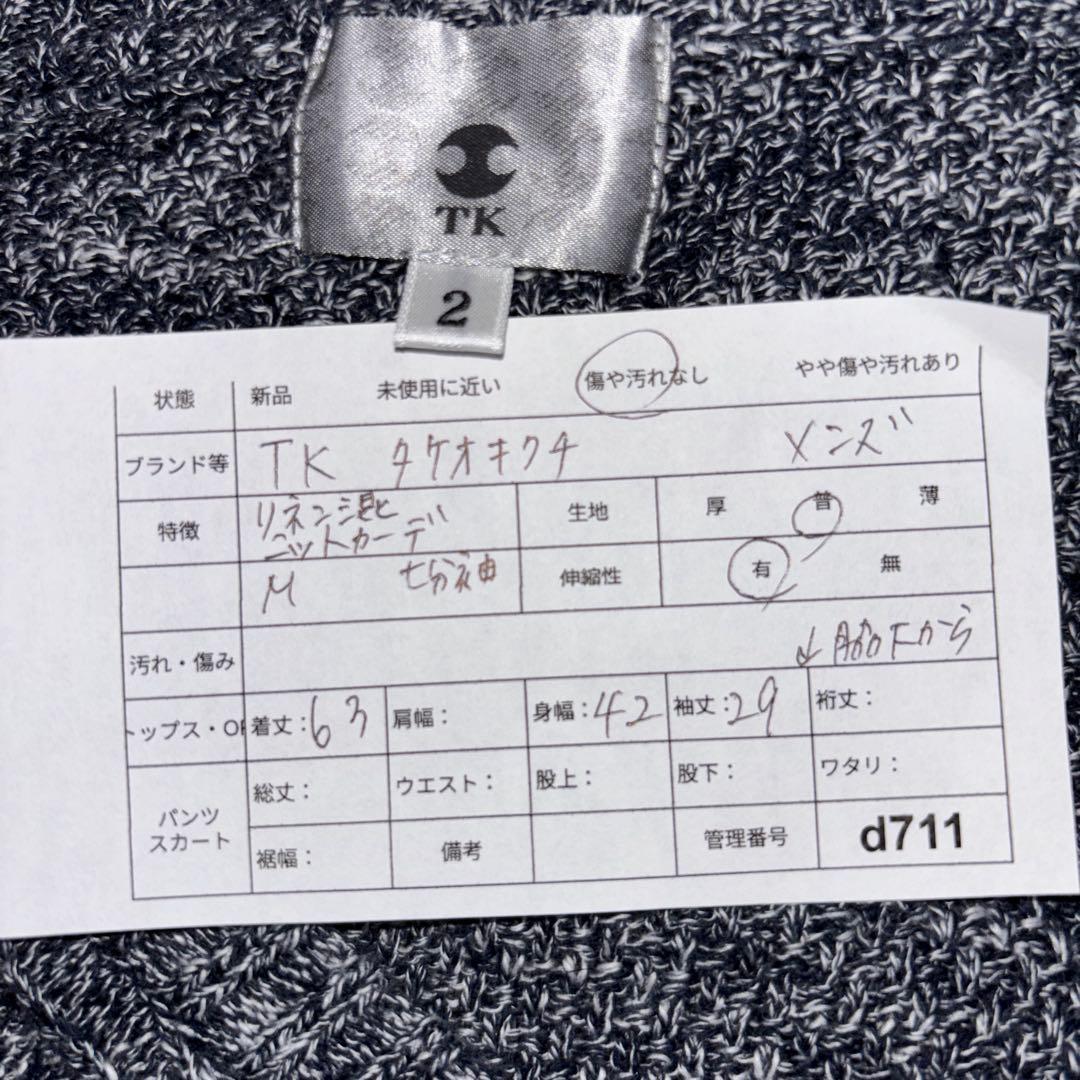 TK
2
状態 新品 未使用に近い 傷や汚れなし やや傷や汚れあり
ブランド等 TK タケオキクチ メンズ
特徴 リネン混 生地 厚 普 薄
ニットカーデ
M 七分袖 伸縮性 有 無
汚れ・傷み ↓脇下から
トップス・OP 着丈:63 肩幅: 身幅:42 袖丈:29 裄丈:
パンツ スカート 総丈: ウエスト: 股上: 股下: ワタリ:
裾幅: 備考 管理番号 d711